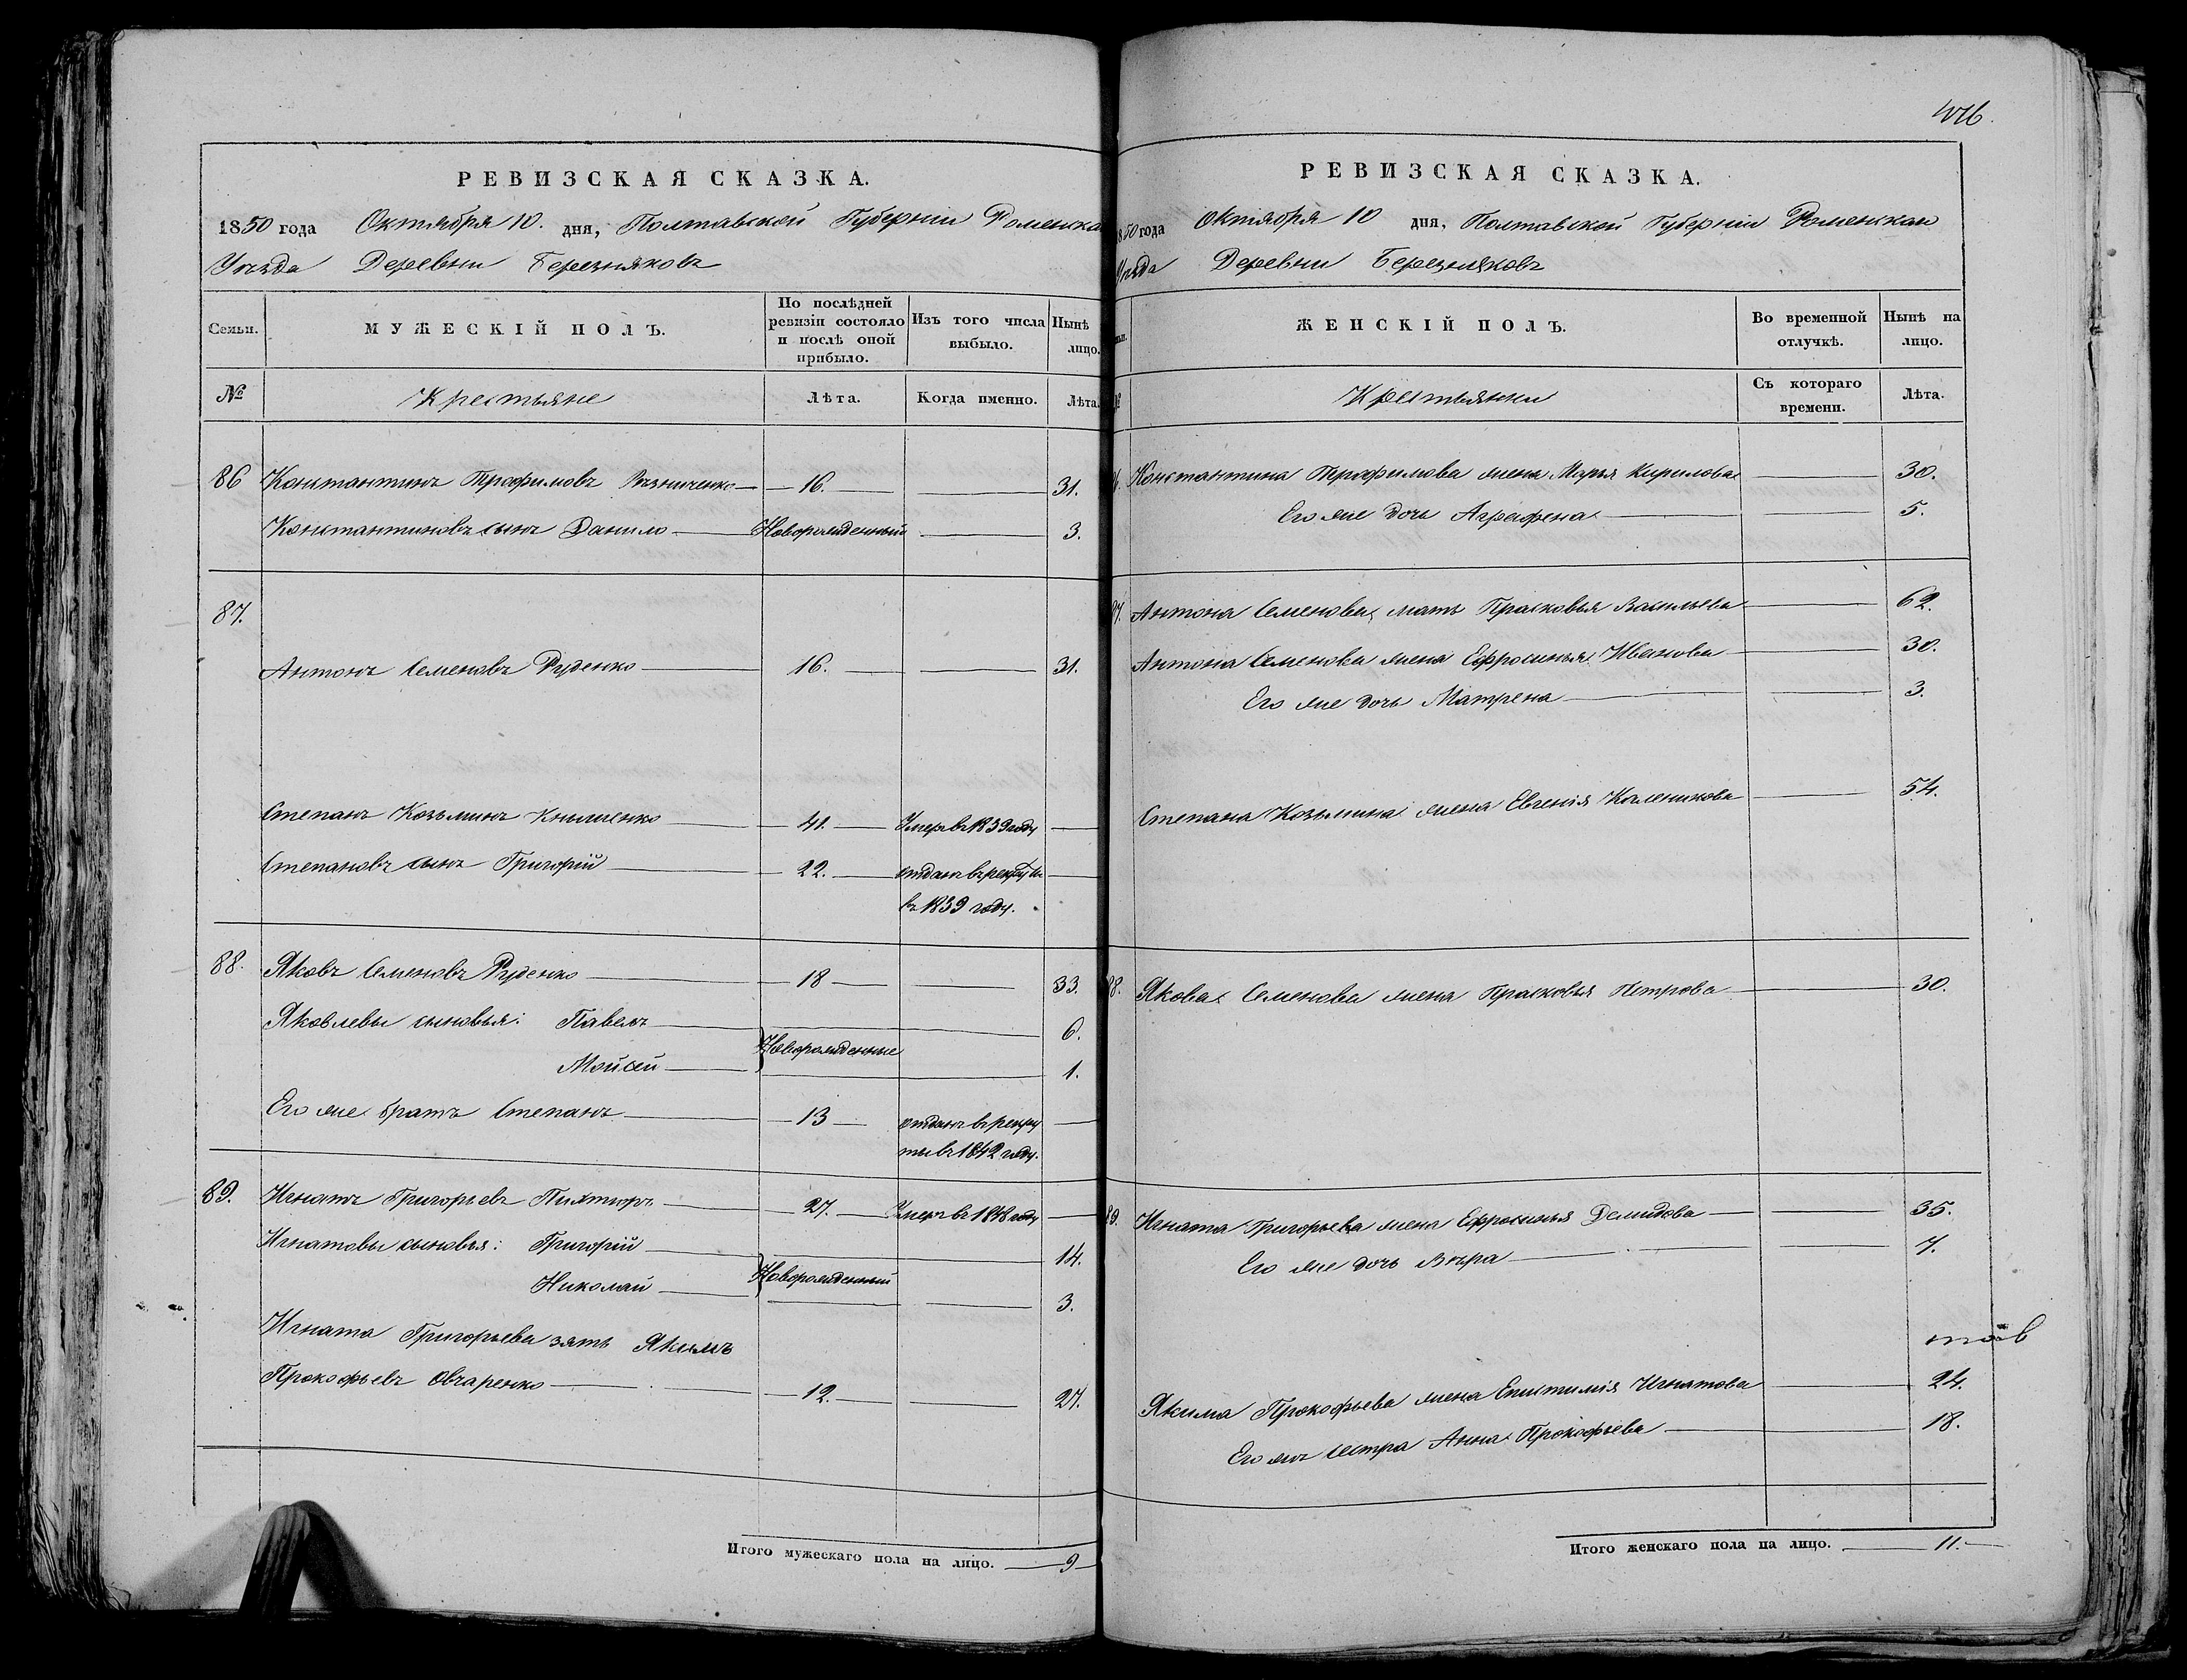 РЕВИЗСКАЯ СКАЗКА.
1850 года Октября 10. дня, Полтавской Губернiи Роменска
Уѣзда Деревни Березняковъ
Семьи.
МУЖЕСКІЙ ПОЛЪ.
По послѣдней
ревизіи состояло
и послѣ оной
прибыло.
Изъ того числа
выбыло.
Нынѣ
лицо.
№
Крестьяне
Лѣта.
Когда именно.
Лѣта.
86 Константинъ Трофимовъ — 16. — 31.
Константиновъ сынъ Данило — Новорожденный — 3.
87.
Антонъ Семеновъ Руденко — 16. — 31.
Степанъ Козьминъ Книшенко — 41. — Умеръ въ 1839 году —
Степановъ сынъ Григорій — 22. — отданъ въ рекруты —
въ 1839 году.
88. Яковъ Семеновъ Руденко — 18 — 33.
Яковлевы сыновья: Павелъ — 6.
Новорожденные
Мойсей — 1.
Его же братъ Степанъ — 13 — отданъ въ рекру —
ты въ 1842 году.
89. Игнатъ Григорьевъ — 27. — Умеръ въ 1848 году —
Игнатовы сыновья: Григорій — 14.
Новорожденный
Николай — 3.
Игната Григорьева зять Якимъ
Прокофьевъ Овчаренко — 12. — 27.
Итого мужескаго пола на лицо. — 9 —
416.
РЕВИЗСКАЯ СКАЗКА.
50 года Октября 10 дня, Полтавской Губернiи Роменскаи
ѣзда Деревни Березняковъ
ЖЕНСКІЙ ПОЛЪ.
Во временной
отлучкѣ.
Нынѣ на
лицо.
Крестьянки
Съ котораго
времени.
Лѣта.
Константина Трофимова жена Марья Кирилова — 30.
Его же дочь Аграфена — 5.
Антона Семенова мать Прасковья Васильева — 62.
Антона Семенова жена Ефросинья Иванова — 30.
Его же дочь Матрена — 3.
Степана Козьмина жена Евгенія Каленикова — 54.
88. Якова Семенова жена Прасковья Петрова — 30.
89. Игната Григорьева жена Ефросинья Демидова — 35.
Его же дочь Вѣра — 7.
Якима Прокофьева жена Епистимія Игнатова — 24.
Его жъ сестра Анна Прокофьева — 18.
Итого женскаго пола на лицо. — 11. —